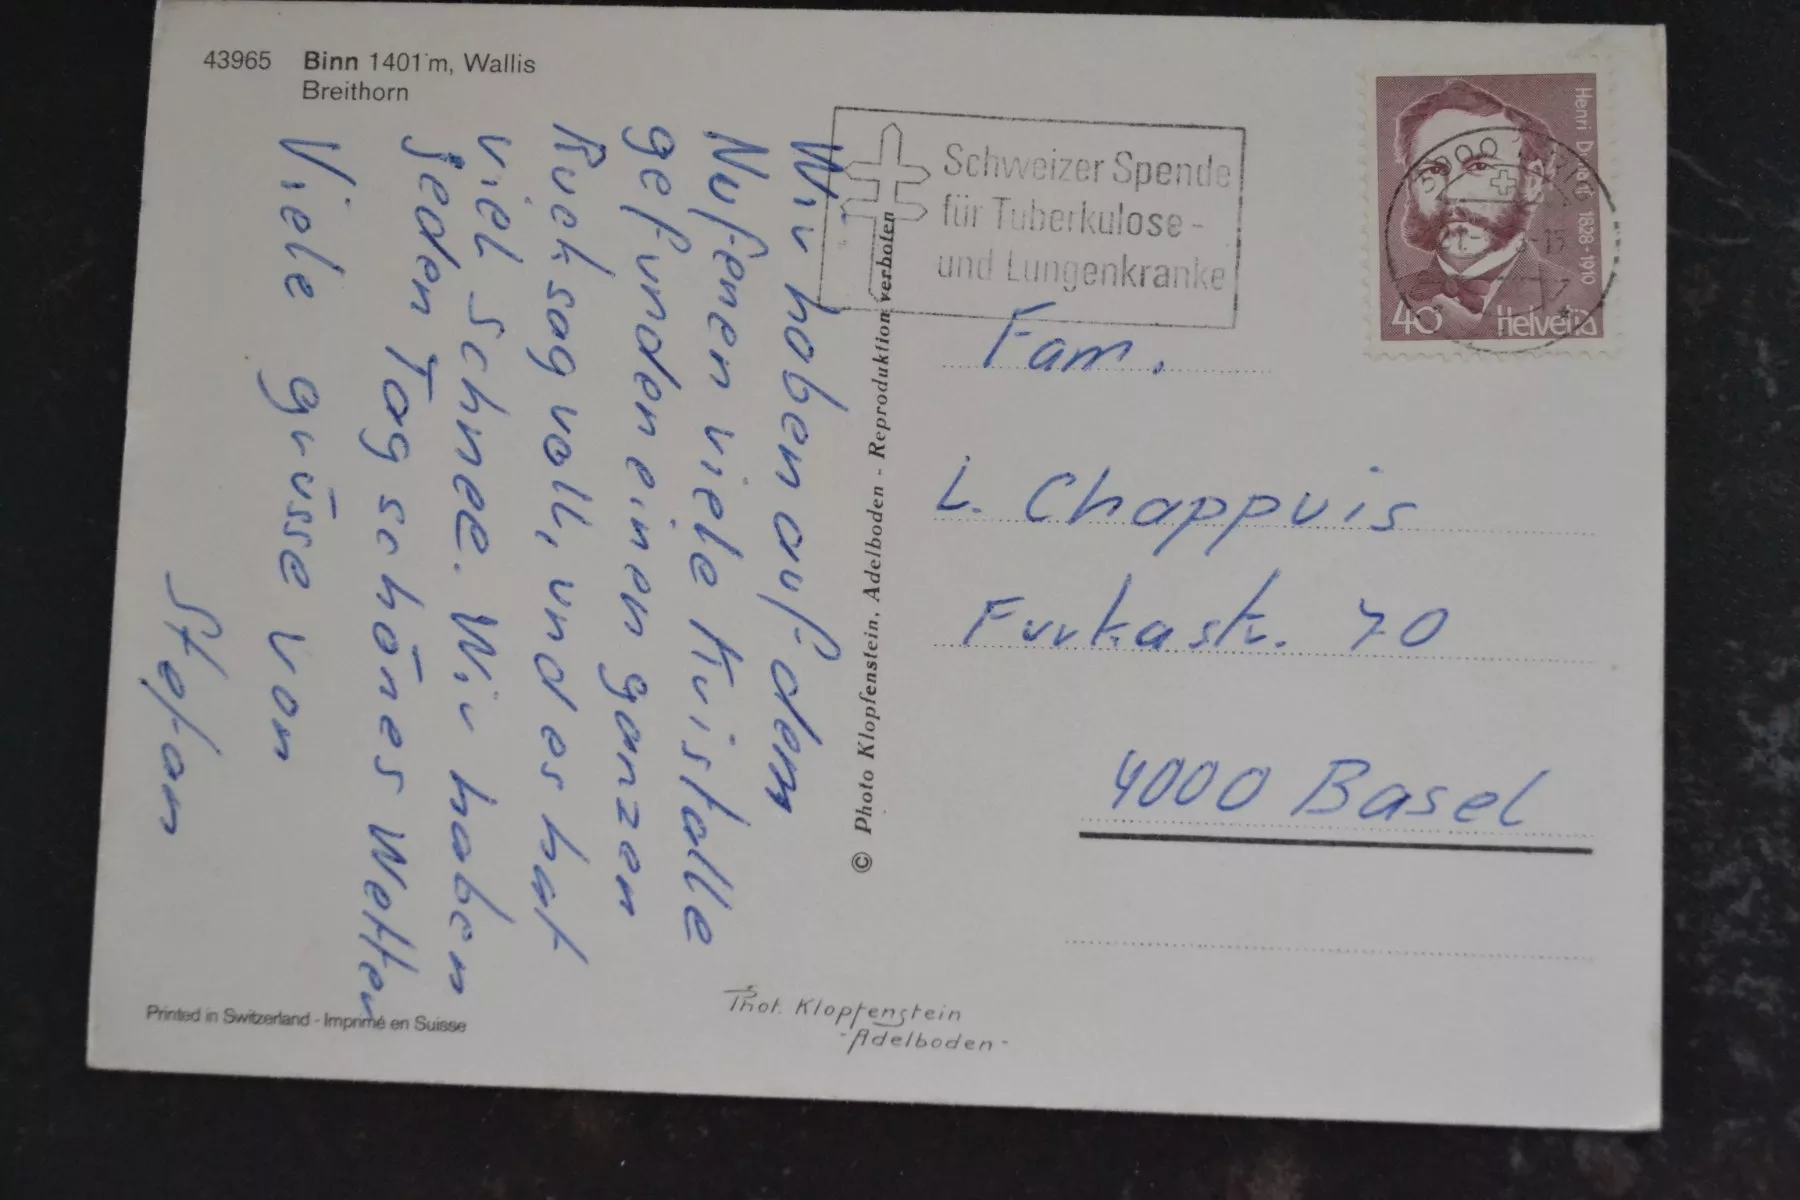 43965 Binn 1401 m, Wallis
Breithorn
Schweizer Spende
für Tuberkulose-
und Lungenkranke
Henri Dunant 1828-1910
40 Helvetia
Wir haben auf dem
Nufenen viele Kristalle
gefunden einen ganzen
Rucksag voll, und es hat
viel Schnee. Wir haben
jeden Tag schönes Wetter
Viele grüsse von
Stefan
© Photo Klopfenstein, Adelboden - Reproduktion verboten
Fam.
L. Chappuis
Furkastr. 70
4000 Basel
Printed in Switzerland - Imprimé en Suisse
Phot. Klopfenstein
- Adelboden -